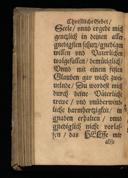 Christliche Gebet/
Seele/ vnnd ergebe mich
gentzlich in deinen aller
gnedigsten schutz/ gnedigen
willen vnd Väterliches
wolgefallen/ demütiglich/
Vnnd mit einem festen
Glauben gar nicht
Du wordest mich
durch deine Väterliche
trewe/ vnd
liche barmhertzigkeit/ in
gnaden erhalten/ vnnd
gnediglich nicht verlas-
sen/ das HERRe mit